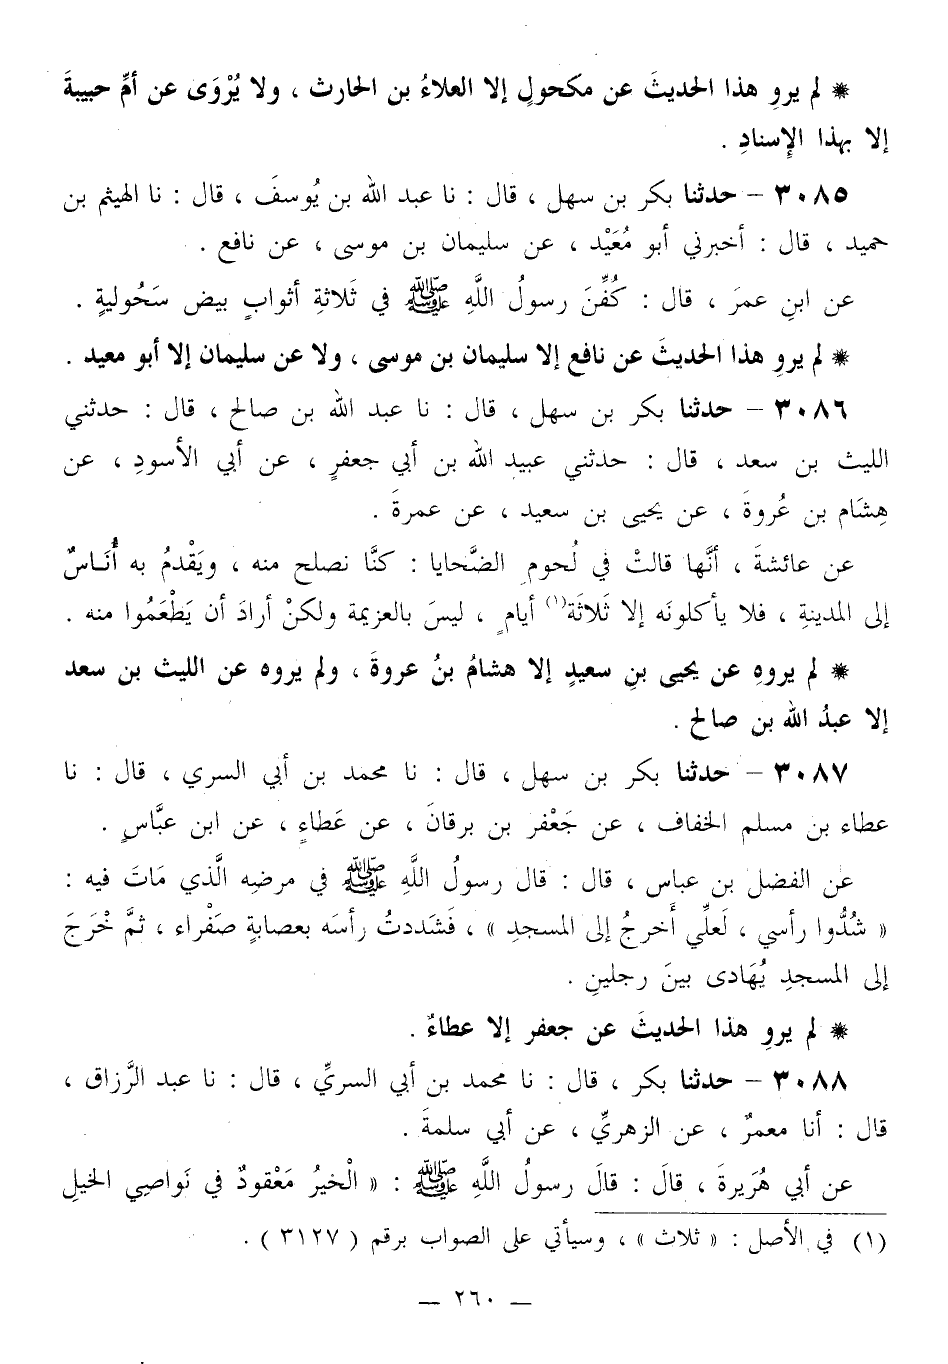 * لم يروِ هذا الحديثَ عن مكحولٍ إلا العلاءُ بن الحارث ، ولا يُرْوَى عن أمِّ حبيبةَ
إلا بهذا الإسنادِ .
٣٠٨٥ – حدثنا بكر بن سهل ، قال : نا عبد الله بن يُوسفَ ، قال : نا الهيثم بن
حميد ، قال : أخبرني أبو مُعَيْد ، عن سليمان بن موسى ، عن نافع .
عن ابنِ عمرَ ، قال : كُفِّنَ رسولُ اللَّهِ ﷺ في ثَلاثةِ أثوابٍ بيض سَحُوليةٍ .
* لم يروِ هذا الحديثَ عن نافع إلا سليمان بن موسى ، ولا عن سليمان إلا أبو معيد .
٣٠٨٦ – حدثنا بكر بن سهل ، قال : نا عبد الله بن صالح ، قال : حدثني
الليث بن سعد ، قال : حدثني عبيد الله بن أبي جعفرٍ ، عن أبي الأسودِ ، عن
هِشَام بن عُروةَ ، عن يحيى بن سعيد ، عن عمرةَ .
عن عائشةَ ، أنَّها قالتْ في لُحومِ الضَّحايا : كنَّا نصلح منه ، ويَقْدمُ به أُنَاسٌ
إلى المدينةِ ، فلا يأكلونَه إلا ثَلاثَة(١) أيامٍ ، ليسَ بالعزيمة ولكنْ أرادَ أن يَطْعَمُوا منه .
* لم يروهِ عن يحيى بنِ سعيدٍ إلا هشامُ بنُ عروةَ ، ولم يروه عن الليث بن سعد
إلا عبدُ الله بن صالح .
٣٠٨٧ – حدثنا بكر بن سهل ، قال : نا محمد بن أبي السري ، قال : نا
عطاء بن مسلم الخفاف ، عن جَعْفر بن برقانَ ، عن عَطاءٍ ، عن ابن عبَّاسٍ .
عن الفضل بن عباس ، قال : قال رسولُ اللَّهِ ﷺ في مرضِه الَّذي مَاتَ فيه :
« شُدُّوا رأسي ، لَعلِّي أَخرجُ إلى المسجدِ » ، فَشَددتُ رأسَه بعصابةٍ صفْراء ، ثمَّ خْرَجَ
إلى المسجدِ يُهَادى بينَ رجلينِ .
* لم يروِ هذا الحديثَ عن جعفر إلا عطاءٌ .
٣٠٨٨ – حدثنا بكر ، قال : نا محمد بن أبي السريِّ ، قال : نا عبد الرَّزاق ،
قال : أنا معمرٌ ، عن الزهريِّ ، عن أبي سلمةَ .
عن أبي هُرَيرةَ ، قالَ : قالَ رسولُ اللَّهِ ﷺ : « الْخيرُ مَعْقودٌ في نَواصِي الخيلِ
(١) في الأصل : « ثلاث » ، وسيأتي على الصواب برقم ( ٣١٢٧ ) .
– ٢٦٠ –